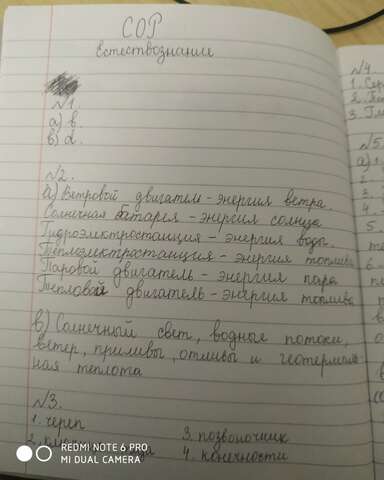 СОР
Естествознание
№1.
а) в.
в) d.
№2.
а) Ветровой двигатель - энергия ветра.
Солнечная батарея - энергия солнца
Гидроэлектростанция - энергия воды.
Теплоэлектростанция - энергия топлива
Паровой двигатель - энергия пара
Тепловой двигатель - энергия топлива
в) Солнечный свет, водные потоки,
ветер, приливы, отливы и геотермаль
ная теплота
№3.
1. череп
3. позвоночник
4. конечности
№4.
1. Сер
3. Гла
№5.
а) 1.
REDMI NOTE 6 PRO
MI DUAL CAMERA